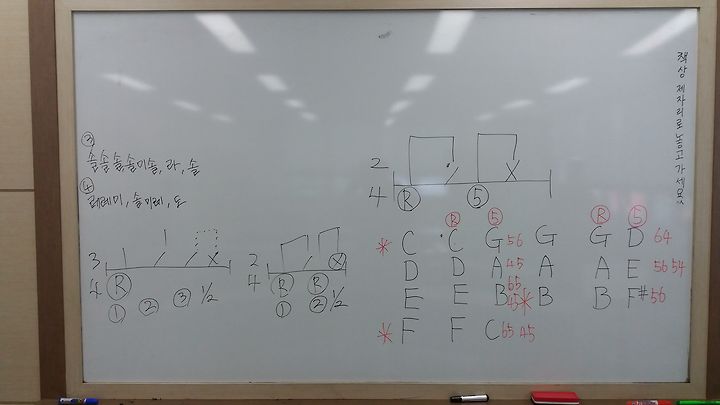 ③
솔솔솔솔미솔, 라, 솔
④
레레미, 솔미레, 도
3
4 Ⓡ
① ② ③ 1/2
2
4 Ⓡ Ⓡ
① ② 1/2
2
4 Ⓡ ⑤
Ⓡ ⑤ Ⓡ ⑤
* C C G 56 G G D 64
D D A 45 A A E 56 54
E E B 65 45 * B B F# 56
* F F C 65 45
책상 제자리로 놓고 가세요